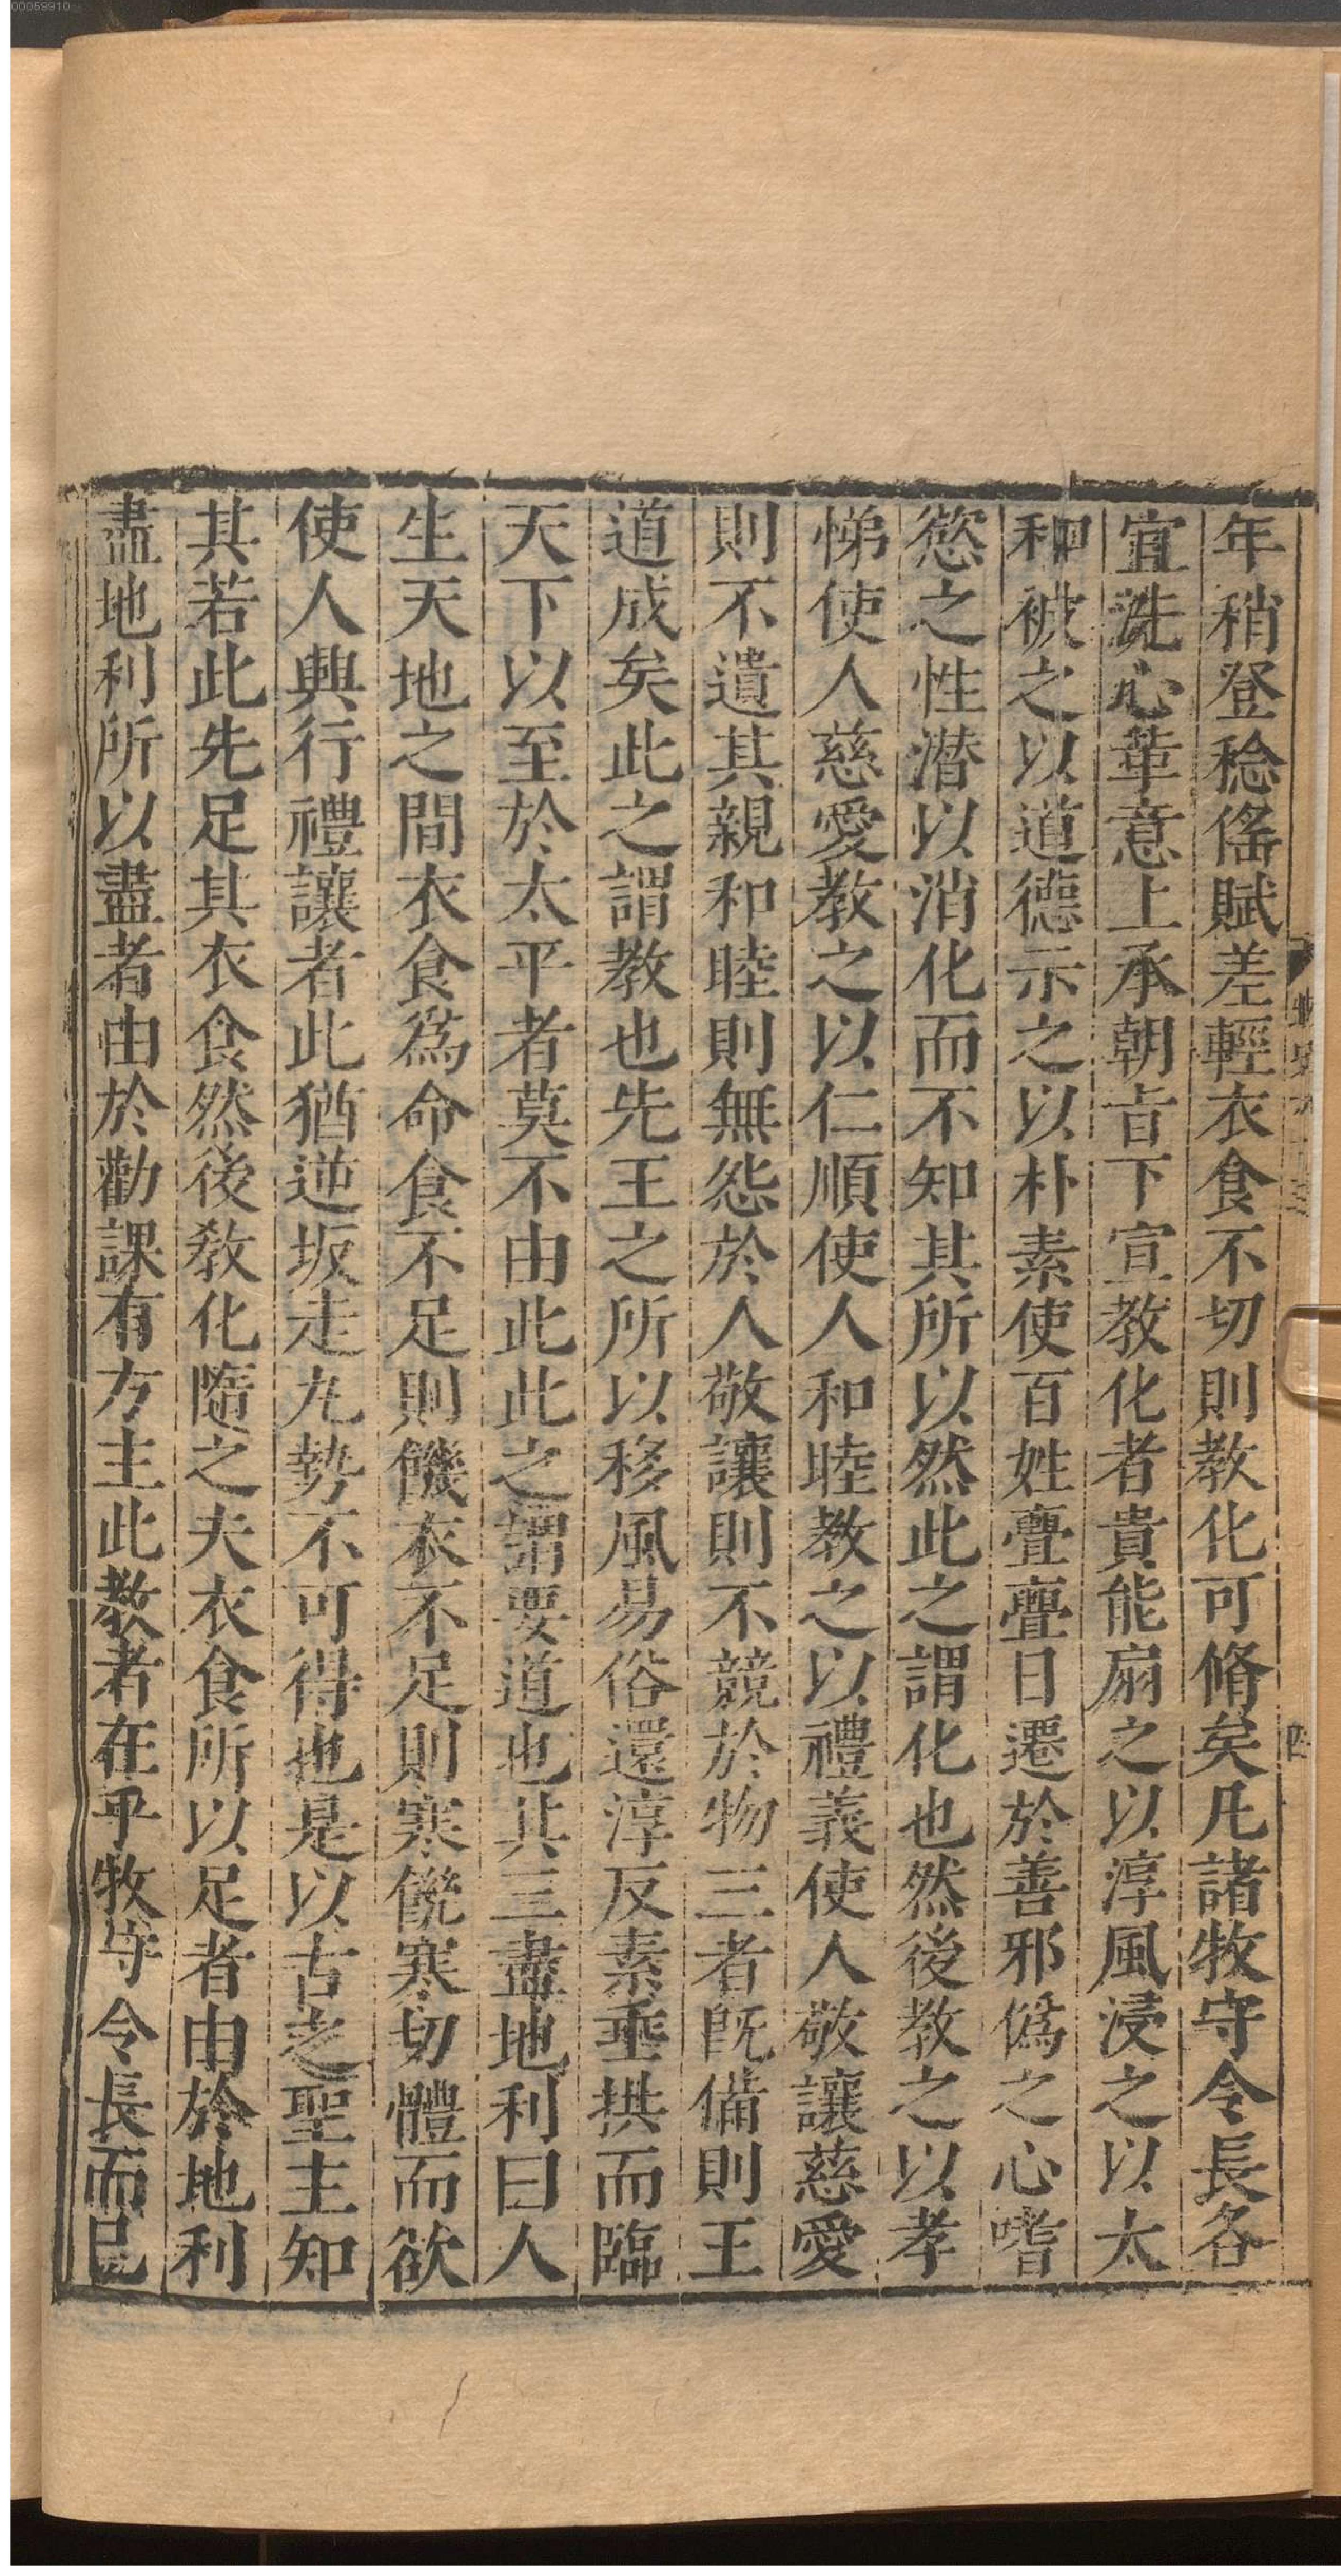 00059910
年稍登稔徭賦差輕衣食不切則教化可脩矣凡諸牧守令長各
宜洗心革意上承朝旨下宣教化者貴能扇之以淳風浸之以太
和被之以道德示之以朴素使百姓亹亹日遷於善邪僞之心嗜
慾之性潛以消化而不知其所以然此之謂化也然後教之以孝
悌使人慈愛教之以仁順使人和睦教之以禮義使人敬讓慈愛
則不遺其親和睦則無怨於人敬讓則不競於物三者旣備則王
道成矣此之謂教也先王之所以移風易俗還淳反素垂拱而臨
天下以至於太平者莫不由此此之謂要道也其三盡地利曰人
生天地之間衣食爲命食不足則饑衣不足則寒饑寒切體而欲
使人興行禮讓者此猶逆坂走九勢不可得也是以古之聖主知
其若此先足其衣食然後敎化隨之夫衣食所以足者由於地利
盡地利所以盡者由於勸課有方主此教者在乎牧守令長而已
四